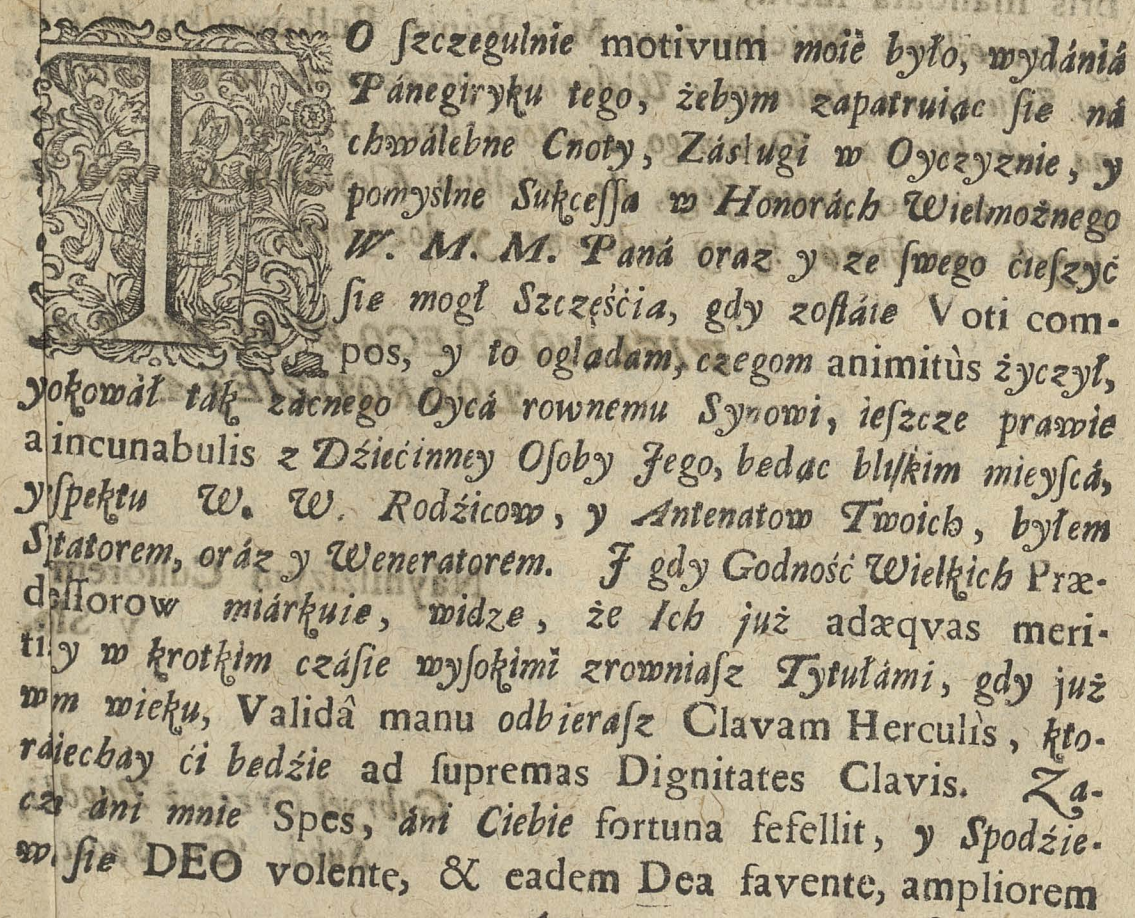 TO ſzczegulnie motivum moie było, wydániá
Pánegiryku tego, żebym zapatruiąc ſie ná
chwálebne Cnoty, Zásługi w Oyczyznie, y
pomyslne Sukceſſa w Honorách Wielmożnego
W. M. M. Paná oraz y ze ſwego ćieſzyć
ſie mogł Szczęśćia, gdy zoſtáie Voti com-
pos, y to oglądam, czegom animitùs życzył,
yokowáł ták zácnego Oycá rownemu Synowi, ieſzcze prawie
a incunabulis z Dźiećinney Oſoby Jego, bedąc bliſkim mieyſcá,
y ſpektu W. W. Rodźicow, y Antenatow Twoich, byłem
tatorem, oráz y Weneratorem. J gdy Godność Wielkich Præ-
deſſorow miárkuie, widze, że Ich już adæqvas meri-
ti y w krotkim czáſie wyſokimi zrowniaſz Tytułámi, gdy już
wm wieku, Validâ manu odbieraſz Clavam Herculìs, kto-
ra iechay ći bedźie ad ſupremas Dignitates Clavis. Za-
áni mnie Spes, áni Ciebie fortuna fefellit, y Spodźie-
w ſie DEO volente, & eadem Dea favente, ampliorem